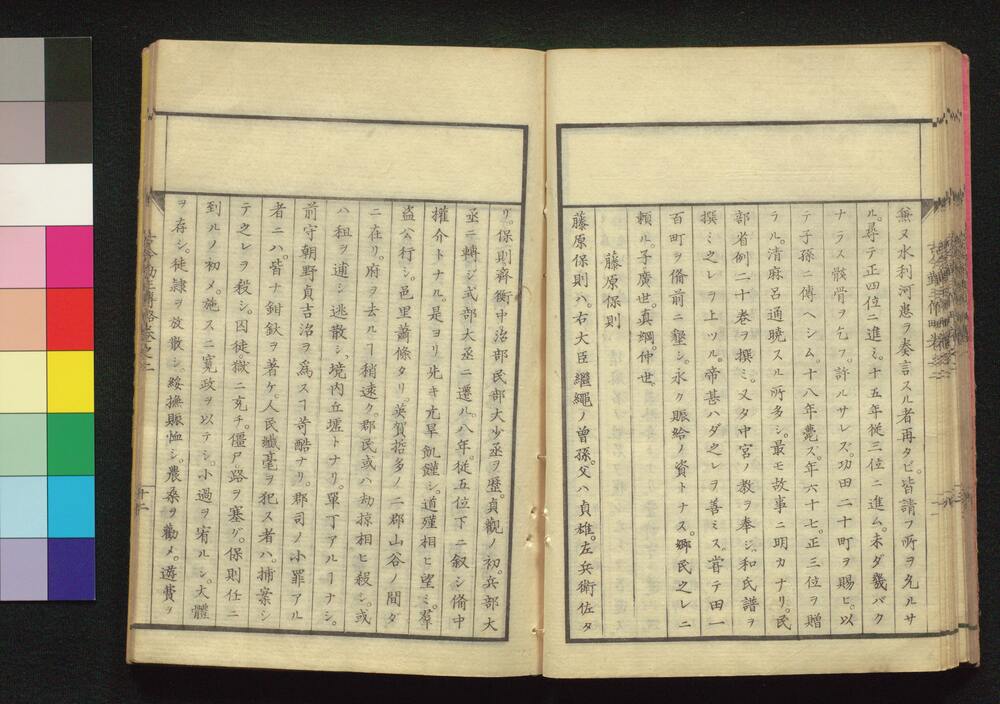 無ヌ水利河患ヲ奏言スル者再タビ。皆請フ所ヲ允ルサ
ル。尋テ正四位ニ進ミ。十五年従三位ニ進ム。未ダ幾バク
ナラス骸骨ヲ乞フ。許ルサレス。功田二十町ヲ賜ヒ。以
テ子孫ニ傳ヘシム。十八年薨ズ。年六十七。正三位ヲ贈
ラル。清麻呂通曉スル所多シ。最モ故事ニ明カナリ。民
部省例二十巻ヲ撰ミ。又タ中宮ノ教ヲ奉シ。和氏譜ヲ
撰ミ之レヲ上ツル。帝甚ハダ之レヲ善ミス。甞テ田一
百町ヲ備前ニ墾シ。永ク賑給ノ資トナス。郷民之レニ
頼ル。子廣世。真綱。仲世。
藤原保則
藤原保則ハ。右大臣繼繩ノ曾孫。父ハ貞雄。左兵衛佐タ
リ。保則齊衡中治部民部大少丞ヲ歴。貞觀ノ初。兵部大
丞ニ轉ジ式部大丞ニ遷ル。八年。従五位下ニ叙シ備中
權介トナル。是ヨリ先キ亢旱飢饉シ。道殣相ヒ望ミ。羣
盗公行シ。邑里蕭條タリ。英賀哲多ノ二郡山谷ノ間ダ
ニ在リ。府ヲ去ルヿ稍遠ク。郡民或ハ劫掠相ヒ殺シ。或
ハ租ヲ逋シ逃散シ。境内丘墟トナリ。單丁アルヿナシ。
前守朝野貞吉治ヲ爲スヿ苛酷ナリ。郡司ノ小罪アル
者ニハ。皆ナ鉗釱ヲ著ケ。人民纎毫ヲ犯ス者ハ。捕案シ
テ之レヲ殺シ。囚徒。獄ニ充チ。僵尸。路ヲ塞グ。保則任ニ
到ルノ初メ。施スニ寛政ヲ以テシ。小過ヲ宥ルシ。大體
ヲ存シ。徒隷ヲ放散シ。綏撫賑恤シ。農桑ヲ勸メ。遊費ヲ
十二